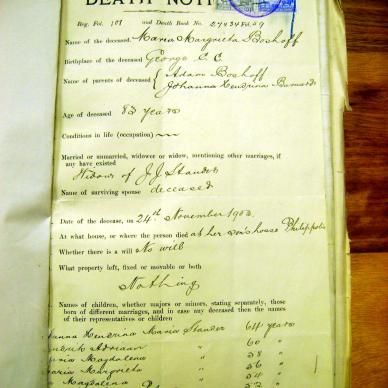 DEATH NOTI
Reg. Fol. 101 and Death Book No.
Name of the deceased Maria Margrieta Boshoff
Birthplace of the deceased George C.C.
Name of parents of deceased { Adam Boshoff
Johanna Hendrina Barnard
Age of deceased 83 years
Conditions in life (occupation)
Married or unmarried, widower or widow, mentioning other marriages, if
any have existed
Widow of J J Stander
Name of surviving spouse deceased
Date of the decease, on 24th November 1902.
At what house, or where the person died at her son's house Philippolis
Whether there is a will No will
What property left, fixed or movable or both
Nothing
Names of children, whether majors or minors, stating separately, those
born of different marriages, and in case any deceased then the names
of their representatives or children
anna Hendrina Maria Stander 64 years
Adriaan " 60 "
Magdalena " 58
aria Margrieta " 56
Magdalena " 54